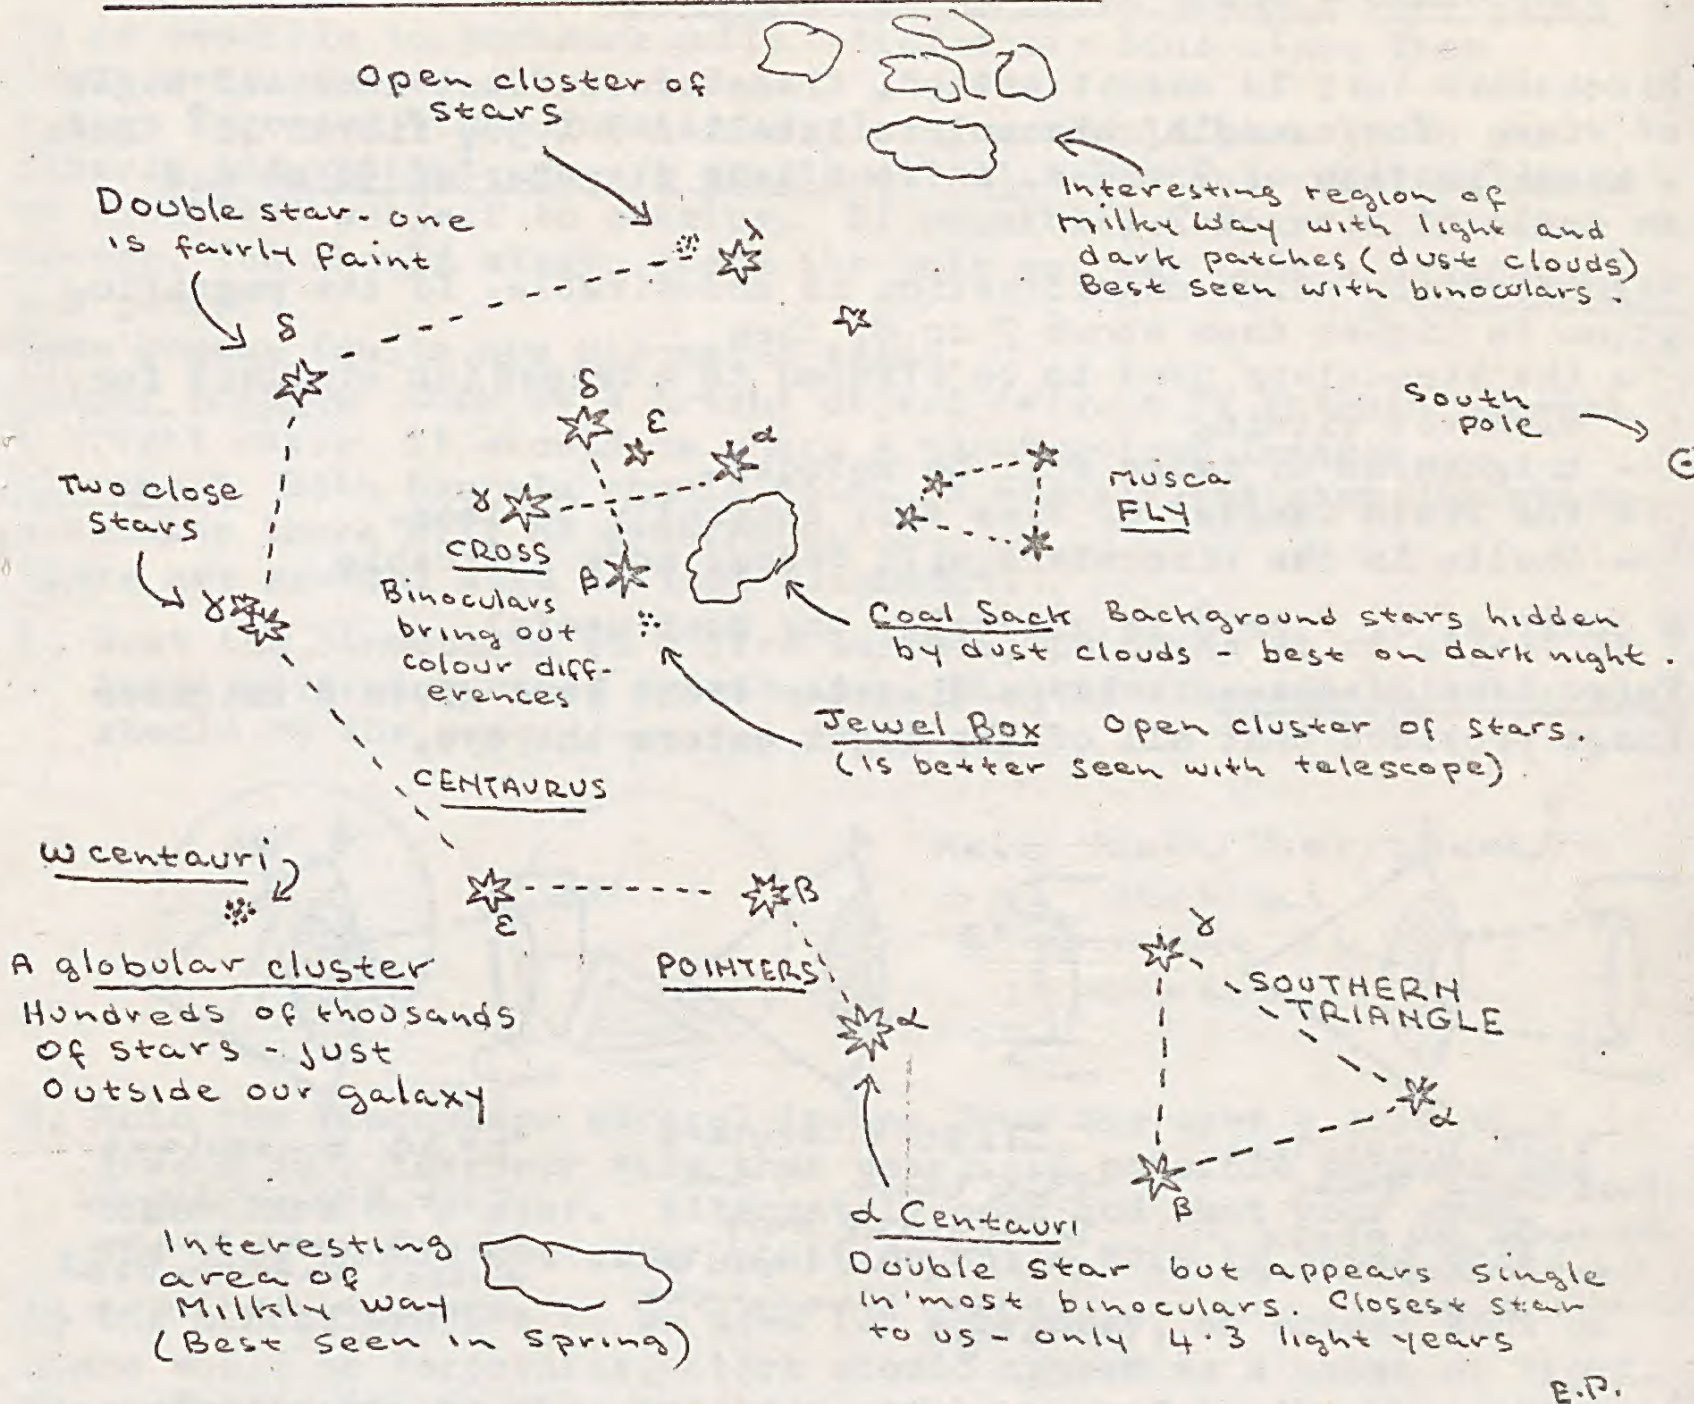 Open cluster of
stars
Interesting region of
Milky Way with light and
dark patches (dust clouds)
Best seen with binoculars.
Double star - one
is fairly faint
λ
δ
δ
ε
α
γ
CROSS
β
Binoculars
bring out
colour diff-
erences
South
pole
Musca
FLY
Two close
stars
γ
Coal Sack Background stars hidden
by dust clouds - best on dark night.
Jewel Box Open cluster of stars.
(is better seen with telescope).
CENTAURUS
ω centauri
ε
β
POINTERS
α
A globular cluster
Hundreds of thousands
of stars - just
outside our galaxy
γ
SOUTHERN
TRIANGLE
α
β
α Centauri
Double star but appears single
in most binoculars. Closest star
to us - only 4.3 light years
Interesting
area of
Milkly way
(Best seen in Spring)
E.P.